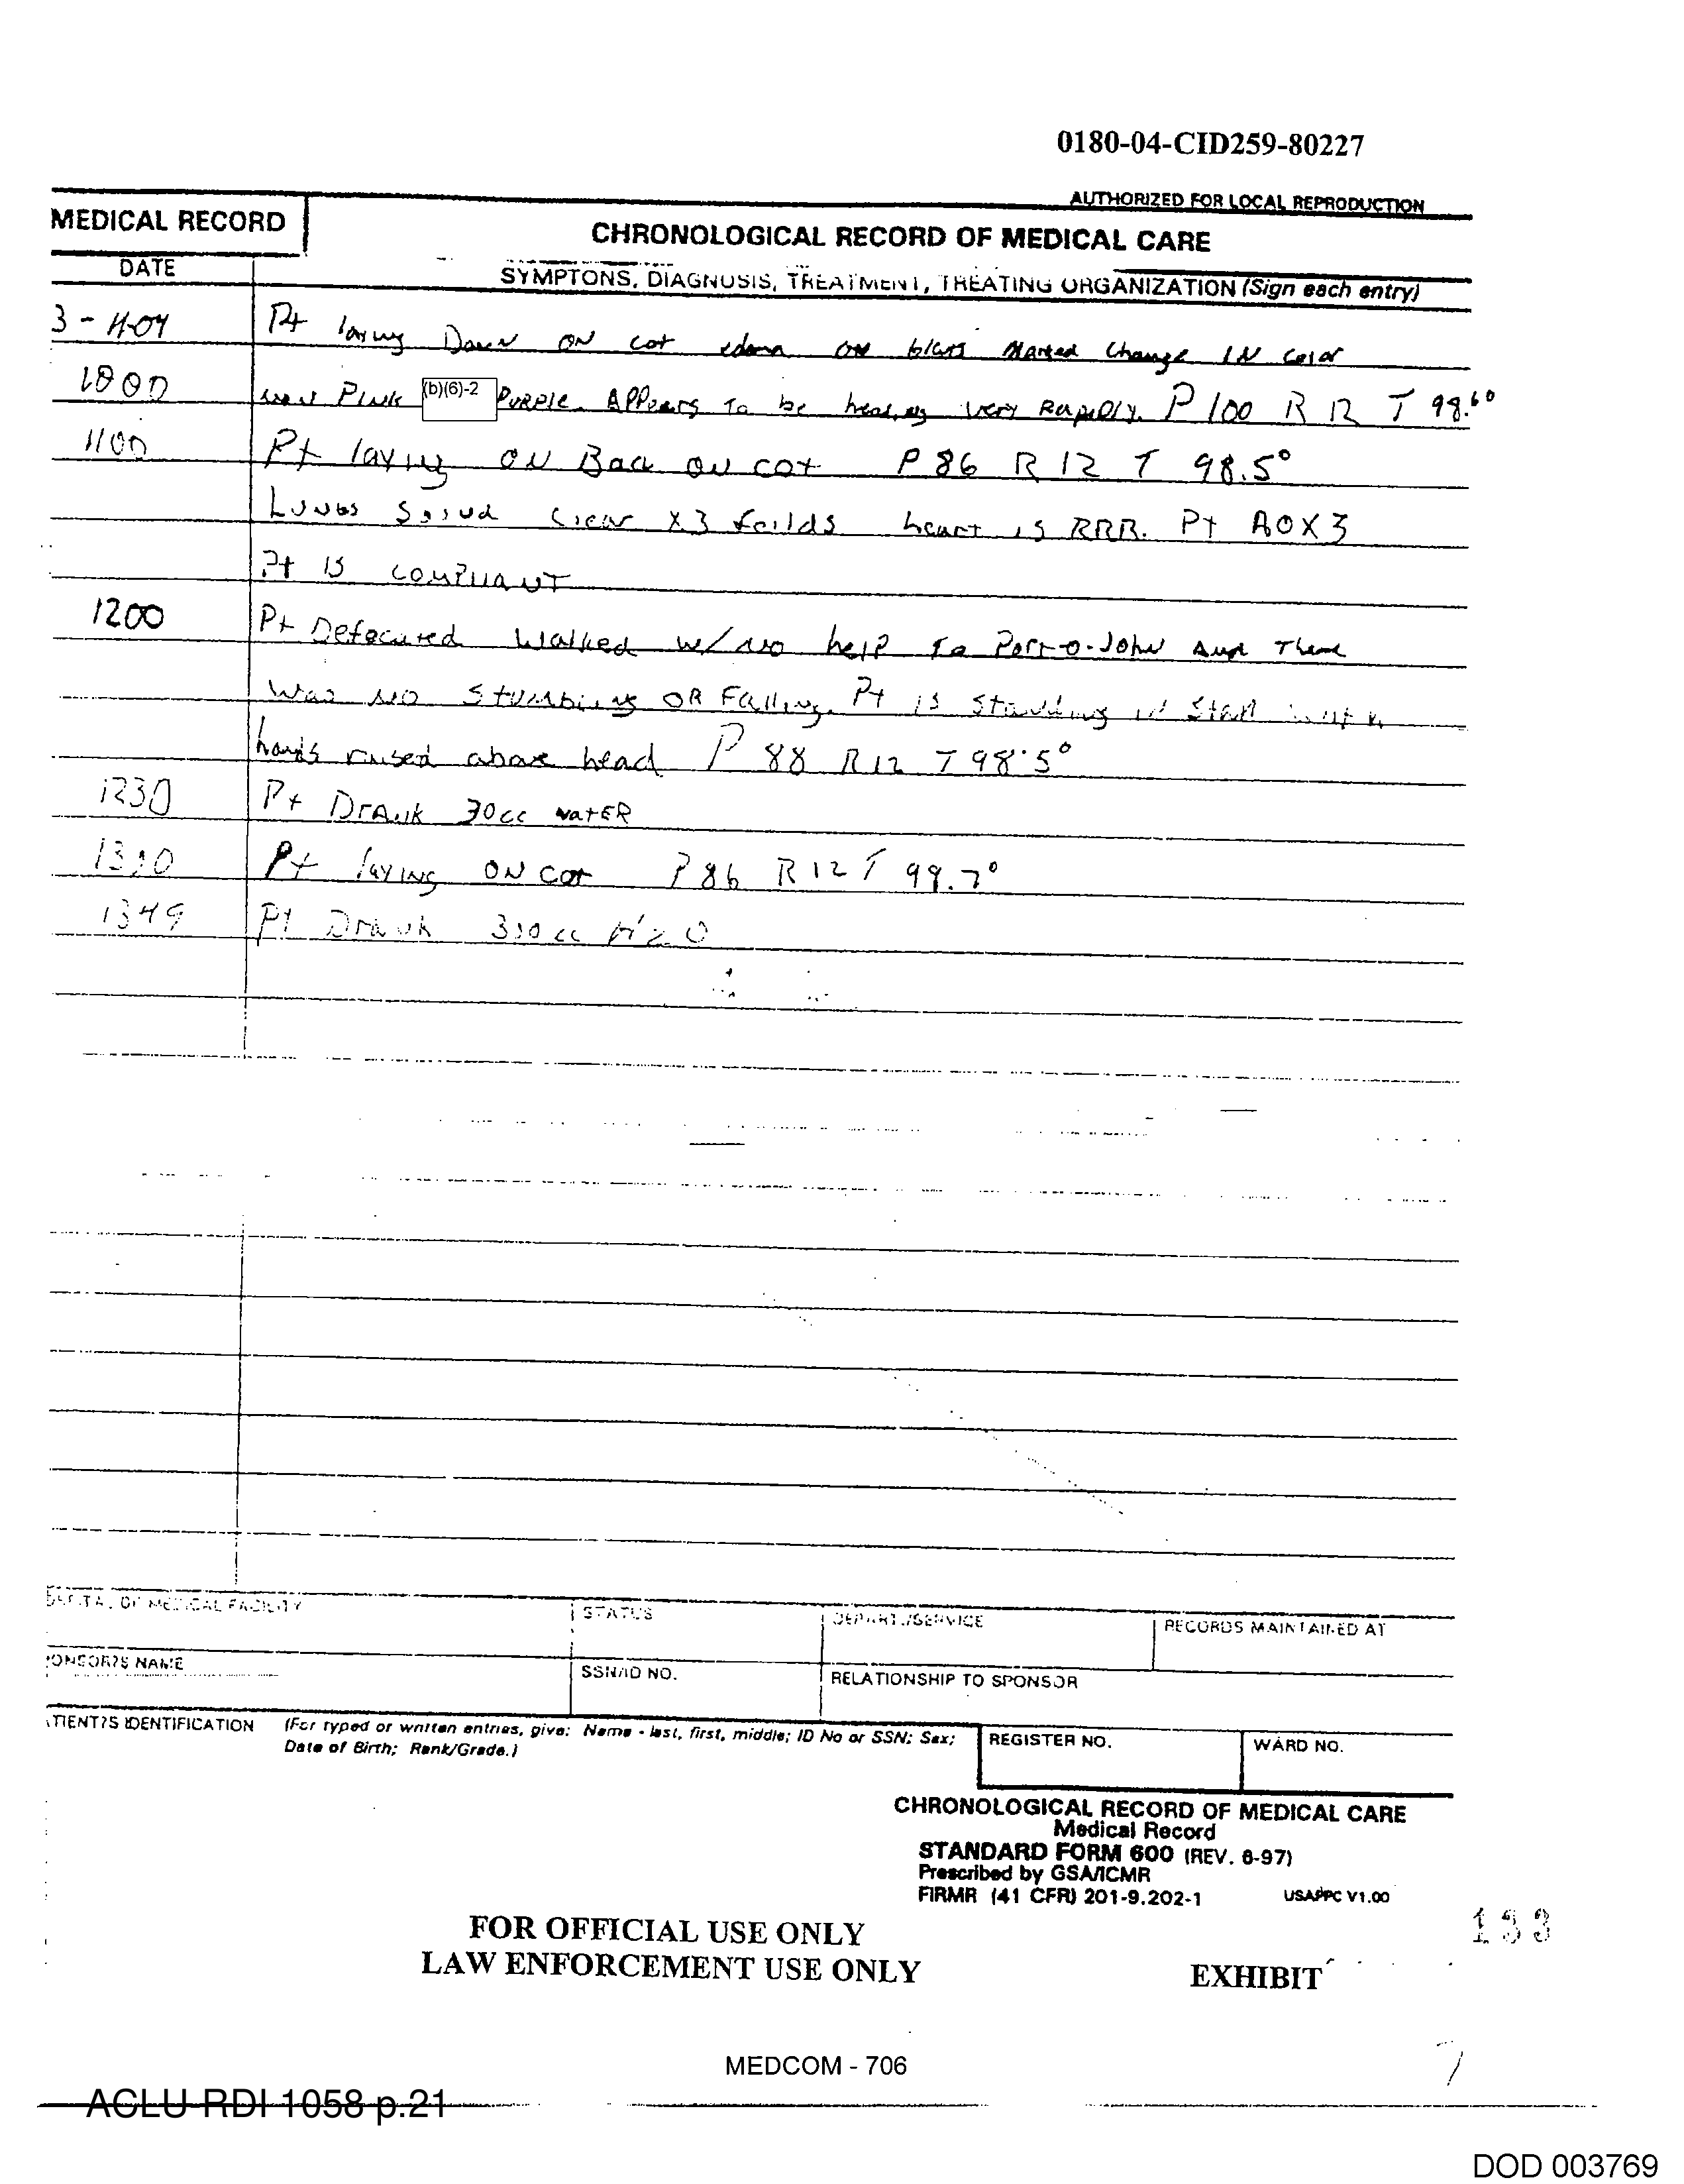 0180-04-CID259-80227
AUTHORIZED FOR LOCAL REPRODUCTION
MEDICAL RECORD
CHRONOLOGICAL RECORD OF MEDICAL CARE
DATE
SYMPTONS, DIAGNOSIS, TREATMENT, TREATING ORGANIZATION (Sign each entry)
3-11-04 Pt laying Down ON cot edema on Marked Change IN Color
1000 Pink (b)(6)-2 PURPLE. APPears To be healing very RapidLy. P 100 R 12 T 98.6°
1100 Pt laying ON Back ON cot P 86 R 12 T 98.5°
LUNGS Sound Clear X3 feilds heart is RRR. Pt AOX3
Pt is COMPLIANT
1200 Pt Defecated Walked w/ no help To Port-O-John And There
Was NO Stumbling OR Falling. Pt is Standing in Stall with
hands raised above head P 88 R 12 T 98.5°
1230 Pt DrANk 30cc WatER
1300 Pt laying ON Cot P 86 R 12 T 99.7°
1349 Pt Drank 300 cc H2O
HOSPITAL OR MEDICAL FACILITY
STATUS
DEPART./SERVICE
RECORDS MAINTAINED AT
ONSOR?S NAME
SSN/ID NO.
RELATIONSHIP TO SPONSOR
TIENT?S IDENTIFICATION
(For typed or written entries, give: Name - last, first, middle; ID No or SSN; Sex;
Date of Birth; Rank/Grade.)
REGISTER NO.
WARD NO.
CHRONOLOGICAL RECORD OF MEDICAL CARE
Medical Record
STANDARD FORM 600 (REV. 6-97)
Prescribed by GSA/ICMR
FIRMR (41 CFR) 201-9.202-1
USAPPC V1.00
133
FOR OFFICIAL USE ONLY
LAW ENFORCEMENT USE ONLY
EXHIBIT
7
MEDCOM - 706
ACLU-RDI 1058 p.21
DOD 003769